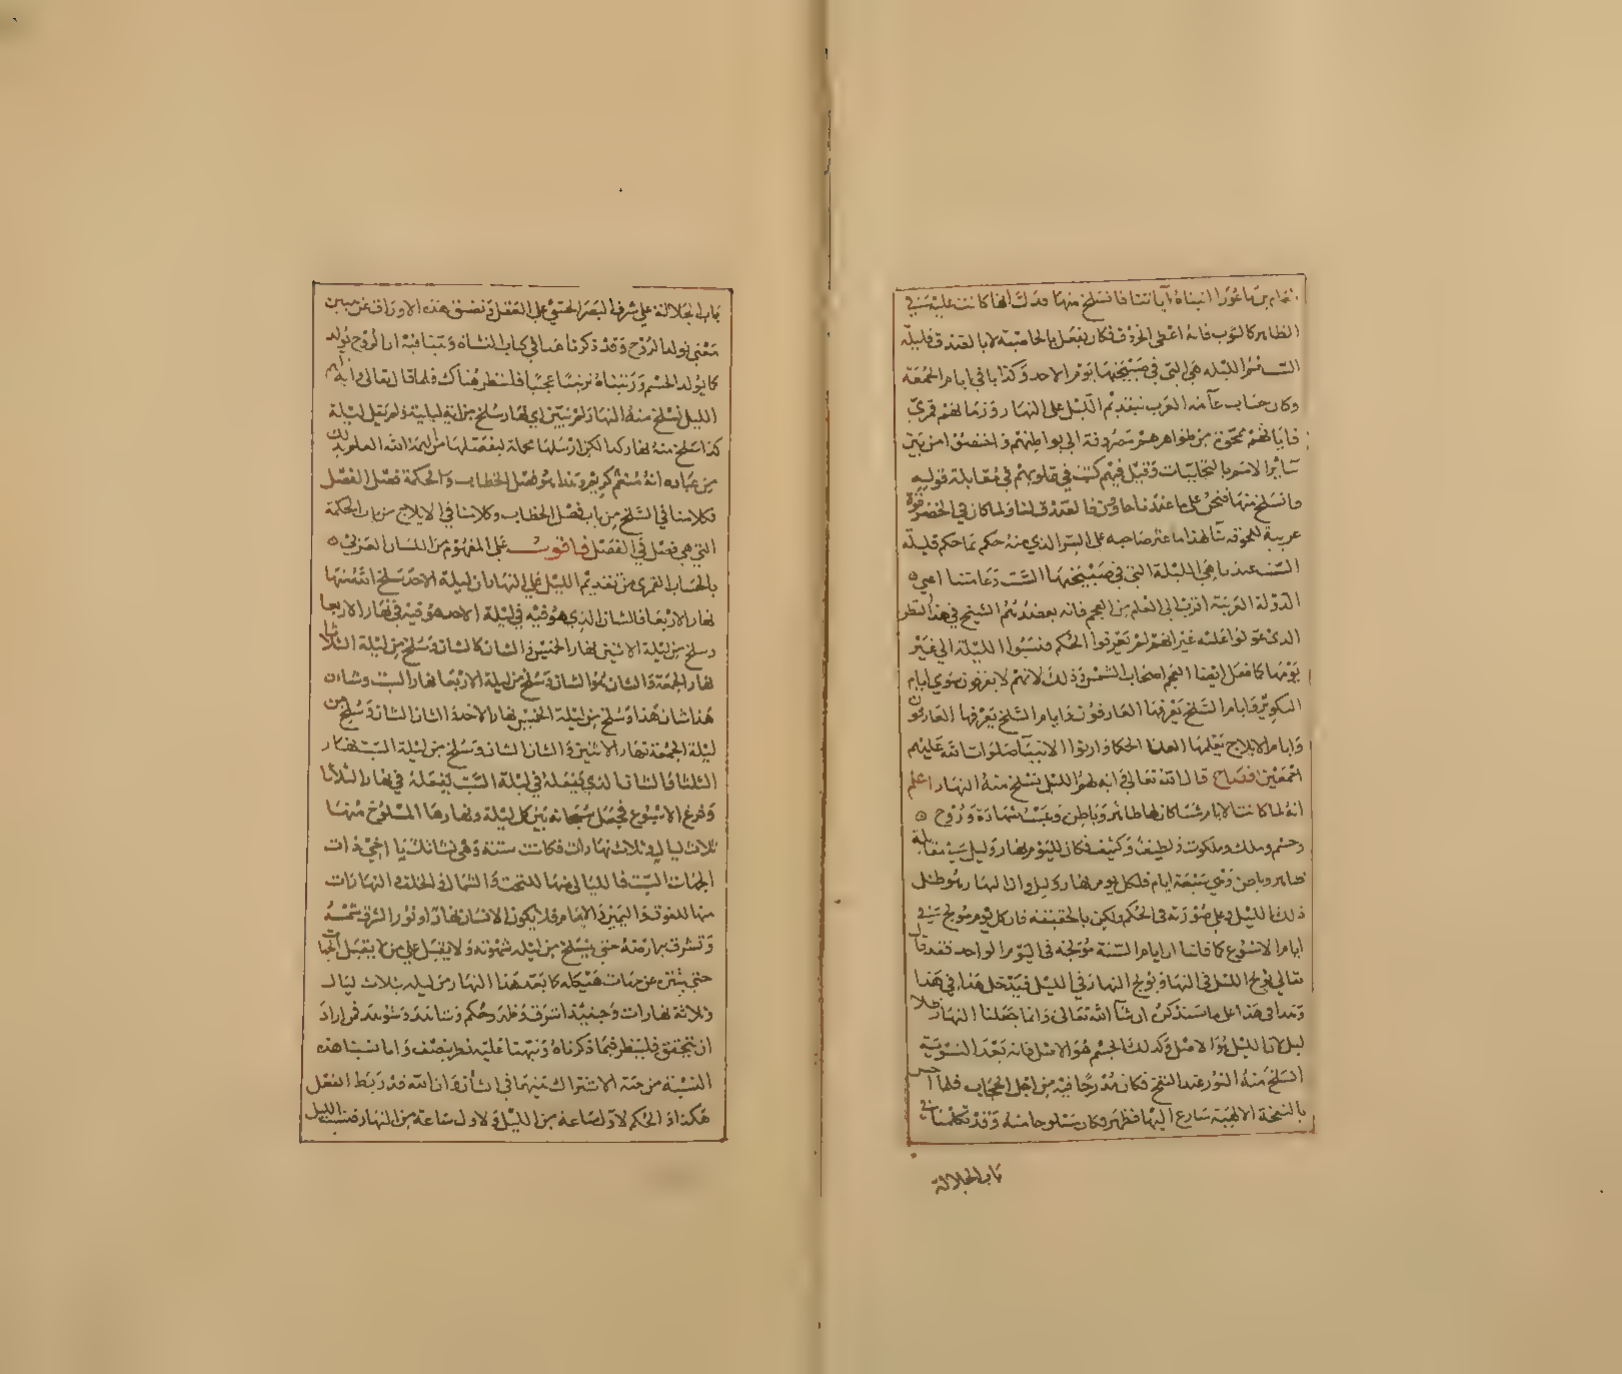 بلعام بن باعورا اتيناه آياتنا فانسلخ منها فدل انها كانت عليه في
الظاهر كالثوب فانه اعطى الحروف فكان يفعل بالخاصية لا بالصدق فليلة
السبت الليلة هي التي في صبيحتها يوم الاحد وكذا باقي ايام الجمعة
وكان حساب عامة العرب بتقديم الليل على النهار وزمانهم قمري
فآياتهم ممحوة من ظواهرهم مصروفة الى بواطنهم واختصوا من بين
سائر الامم بالتجليات وقيل فيهم كتب في قلوبهم في مقابلة قوله
فانسلخ منها فنحن على ما عندنا
الدولة العربية اقرب الى العلم من العجم فانه يعضدهم السلخ في هذا النظر
الذي عولوا عليه غير انهم لم يعرفوا الحكم فنسبوا الليلة الى غير
يومها كما فعل ايضا العجم اصحاب الشمس وذلك لانهم لا يعرفون سوى ايام
التكوير وايام السلخ يعرفها العارفون وايام السلخ يعرفها العارفون
وايام الايلاج يعلمها العلما الحكما وارثوا الانبيآ صلوات الله عليهم
اجمعين افصاح قال الله تعالى وآية لهم الليل نسلخ منه النهار اعلم
انه لما كانت الايام شتا كان لها ظاهر وباطن وغيب وشهادة وروح
وجسم وملك وملكوت ولطيف وكثيف فكان لليوم نهار وليل في مقابلة
ظاهر وباطن وهي سبعة ايام فلكل يوم نهار وليل والنهار ظل
ذلك الليل وعلى صورته في الحكم ولكن بالحقيقة فان كل يوم مولج في
ايام الاسبوع كما قلنا ان ايام السنة مولجة في اليوم الواحد فقد قال
تعالى يولج الليل في النهار ويولج النهار في الليل فيدخل هذا في هذا
وهذا في هذا على ما سنذكره ان شآ الله تعالى وانما جعلنا النهار ظلا
لليل لان الليل هو الاصل وكذلك الجسم هو الاصل فانه بعد التسوية
انسلخ منه النور عند النفخ فكان مدرجا فيه من اجل الحجاب فلما احس
بالنفخة الالهية سارع اليها فظهر فكان مسلوخا منه وقد تكلمنا في
باب الجلالة
باب الجلالة على شرف البصر الحسي على العقل وتضيق هذه الاوراق عن تبيين
معنى تولد الروح وقد ذكرنا هذا في كتاب النشاة وبينا فيه ان الروح تولد
كما تولد الجسم ورتبناه ترتيبا عجيبا فلينظر هناك فلما قال تعالى وآية لهم
الليل نسلخ منه النهار ولم يبين اي نهار سلخ من اية ليلة ولم يقل ليلة
كذا سلخ منه نهار كذا لكن ارسلها مجملة ليفصلها من الهمه الله العلم بذلك
من عباده انه منعم كريم وهذا هو فصل الخطاب والحكمة فصل الفصل
فكلامنا في السلخ من باب فصل الخطاب وكلامنا في الايلاج من باب الحكمة
التي هي فصل في الفصل فاقول على المفهوم من اللسان العربي
بالحساب القمري من تقديم الليل على النهار ان ليلة الاحد سلخ الله منها
نهار الاربعا فالشان الذي هو فيه في ليلة الاحد هو فيه في نهار الاربعا
وسلخ من ليلة الاثنين نهار الخميس والشان كالشان وسلخ من ليلة الثلاثا
نهار الجمعة والشان هو الشان وسلخ من ليلة الاربعا نهار السبت وشان
هذا شان هذا وسلخ من ليلة الخميس نهار الاحد والشان الشان وسلخ من
ليلة الجمعة نهار الاثنين والشان الشان وسلخ من ليلة السبت نهار
الثلثا فالشان الذي يفعله في ليلة السبت يفعله في نهار الثلاثا
وفرغ الاسبوع فجعل سبحانه بين كل ليلة ونهارها المسلوخ منها
ثلاث ليال وثلاث نهارات فكانت ستة وهي نشاتك يا اخي ذات
الجهات الست فالليالى منها للتحت والشمال والخلف والنهارات
منها للفوق واليمين والامام فلا يكون الانسان نهارا ونورا تشرق شمسه
وتشرق به ارضه حتى ينسلخ من ليله شهوته ولا يقبل على من لا يقبل الجهات
حتى يتنزه عن جهات هيكله كما بعد هذا النهار من ليله بثلاث ليال
وثلاثة نهارات وحينئذ اشرق وظهر وحكم
ان يتحقق فلينظر فيما ذكرناه ونبهنا عليه نظر منصف وانما نسبنا هذه
النسبة من جهة الاشتراك بينهما في الشان وان الله قد ربط الفعل
هكذا والحكم لاول ساعة من الليل ولاول ساعة من النهار فنسبت الليل